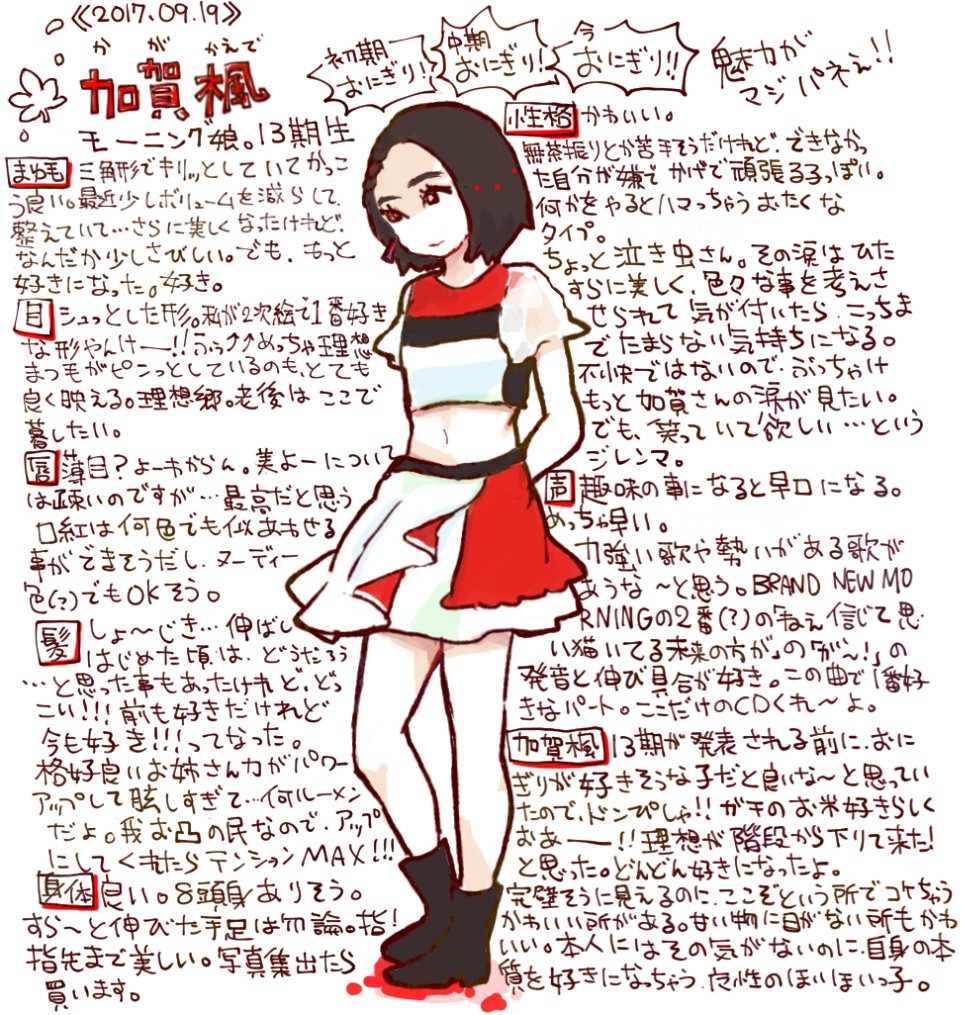 《2017.09.19》
かが かえで
加賀楓
モーニング娘。13期生
初期
おにぎり!
中期
おにぎり!
今
おにぎり!!
魅力が
マジパネぇ!!
まゆ毛 三角形でキリッとしていてかっこ
う良い。最近少しボリュームを減らして、
整えていて…さらに美しくなったけれど、
なんだか少しさびしい。でも、もっと
好きになった。好き。
目 シュっとした形。私が2次絵で1番好き
な形やんけー!!ふぅ↑↑めっちゃ理想
まつ毛がピンっとしているのも、とても
良く映える。理想郷。老後はここで
暮したい。
唇 薄目?よーわからん。美よーについて
は疎いのですが…最高だと思う
口紅は何色でも似あわせる
事ができそうだし、ヌーディー
色(?)でもOKそう。
髪 しょ〜じき…伸ばし
はじめた頃は、どうだろう
…と思った事もあったけれど、どっ
こい!!!前も好きだけれど
今も好き!!!ってなった。
格好良いお姉さん力がパワー
アップして眩しすぎて…何ルーメン
だよ。我お凸の民なので、アップ
にしてくれたらテンションMAX!!!
身体 良い。8頭身ありそう。
すら〜と伸びた手足は勿論。指!
指先まで美しい。写真集出たら
買います。
性格 かわいい。
無茶振りとか苦手そうだけれど、できなかっ
た自分が嫌でかげで頑張る子っぽい。
何かをやるとハマっちゃうおたくな
タイプ。
ちょっと泣き虫さん。その涙はひた
すらに美しく、色々な事を考えさ
せられて気が付いたら、こっちま
でたまらない気持ちになる。
不快ではないので、ぶっちゃけ
もっと加賀さんの涙が見たい。
でも、笑っていて欲しい…という
ジレンマ。
声 趣味の事になると早口になる。
めっちゃ早い。
力強い歌や勢いがある歌が
あうな〜と思う。BRAND NEW MO
RNINGの2番(?)の「ねぇ信じて思
い描いてる未来の方が」の「が〜!」の
発音と伸び具合が好き。この曲で1番好
きなパート。ここだけのCDくれ〜よ。
加賀楓 13期が発表される前に、おに
ぎりが好きそうな子だと良いな〜と思ってい
たので、ドンぴしゃ!!ガチのお米好きらしく
おあーー!!理想が階段から下りて来た!
と思った。どんどん好きになったよ。
完璧そうに見えるのに、ここぞという所でコケちゃう
かわいい所がある。甘い物に目がない所もかわ
いい。本人にはその気がないのに、自身の本
質を好きになっちゃう、女性のほいほいっ子。